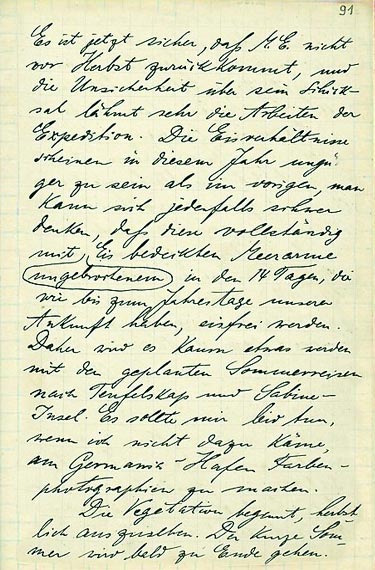 91
Es ist jetzt sicher, daß M. E. nicht
vor Herbst zurückkommt, und
die Unsicherheit über sein Schick-
sal lähmt sehr die Arbeiten der
Expedition. Die Eisverhältnisse
scheinen in diesem Jahr ungü
ger zu sein als im vorigen, man
kann sich jedenfalls schwer
denken, daß diese vollständig
mit Eis bedeckten Meerarme
ungebrochenem in den 14 Tagen, die
wir bis zum Jahrestage unserer
Ankunft haben, eisfrei werden.
Daher wird es kaum etwas werden
mit den geplanten Sommerreisen
nach Teufelskap und Sabine-
Insel. Es sollte mir leid tun,
wenn ich nicht dazu käme,
am Germania-Hafen Farben-
photographien zu machen.
Die Vegetation beginnt, herbst
lich auszusehen. Der kurze Som-
mer wird bald zu Ende gehen.